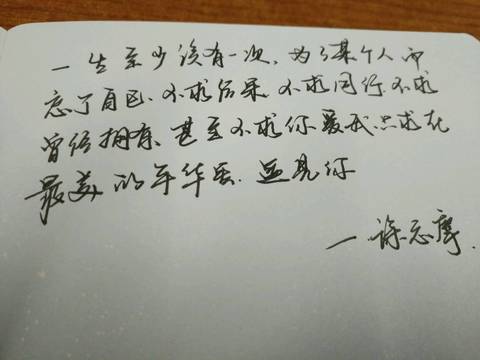 一生至少该有一次，为了某个人而
忘了自己，不求结果，不求同行，不求
曾经拥有，甚至不求你爱我，只求在
最美的年华里，遇见你
—徐志摩.